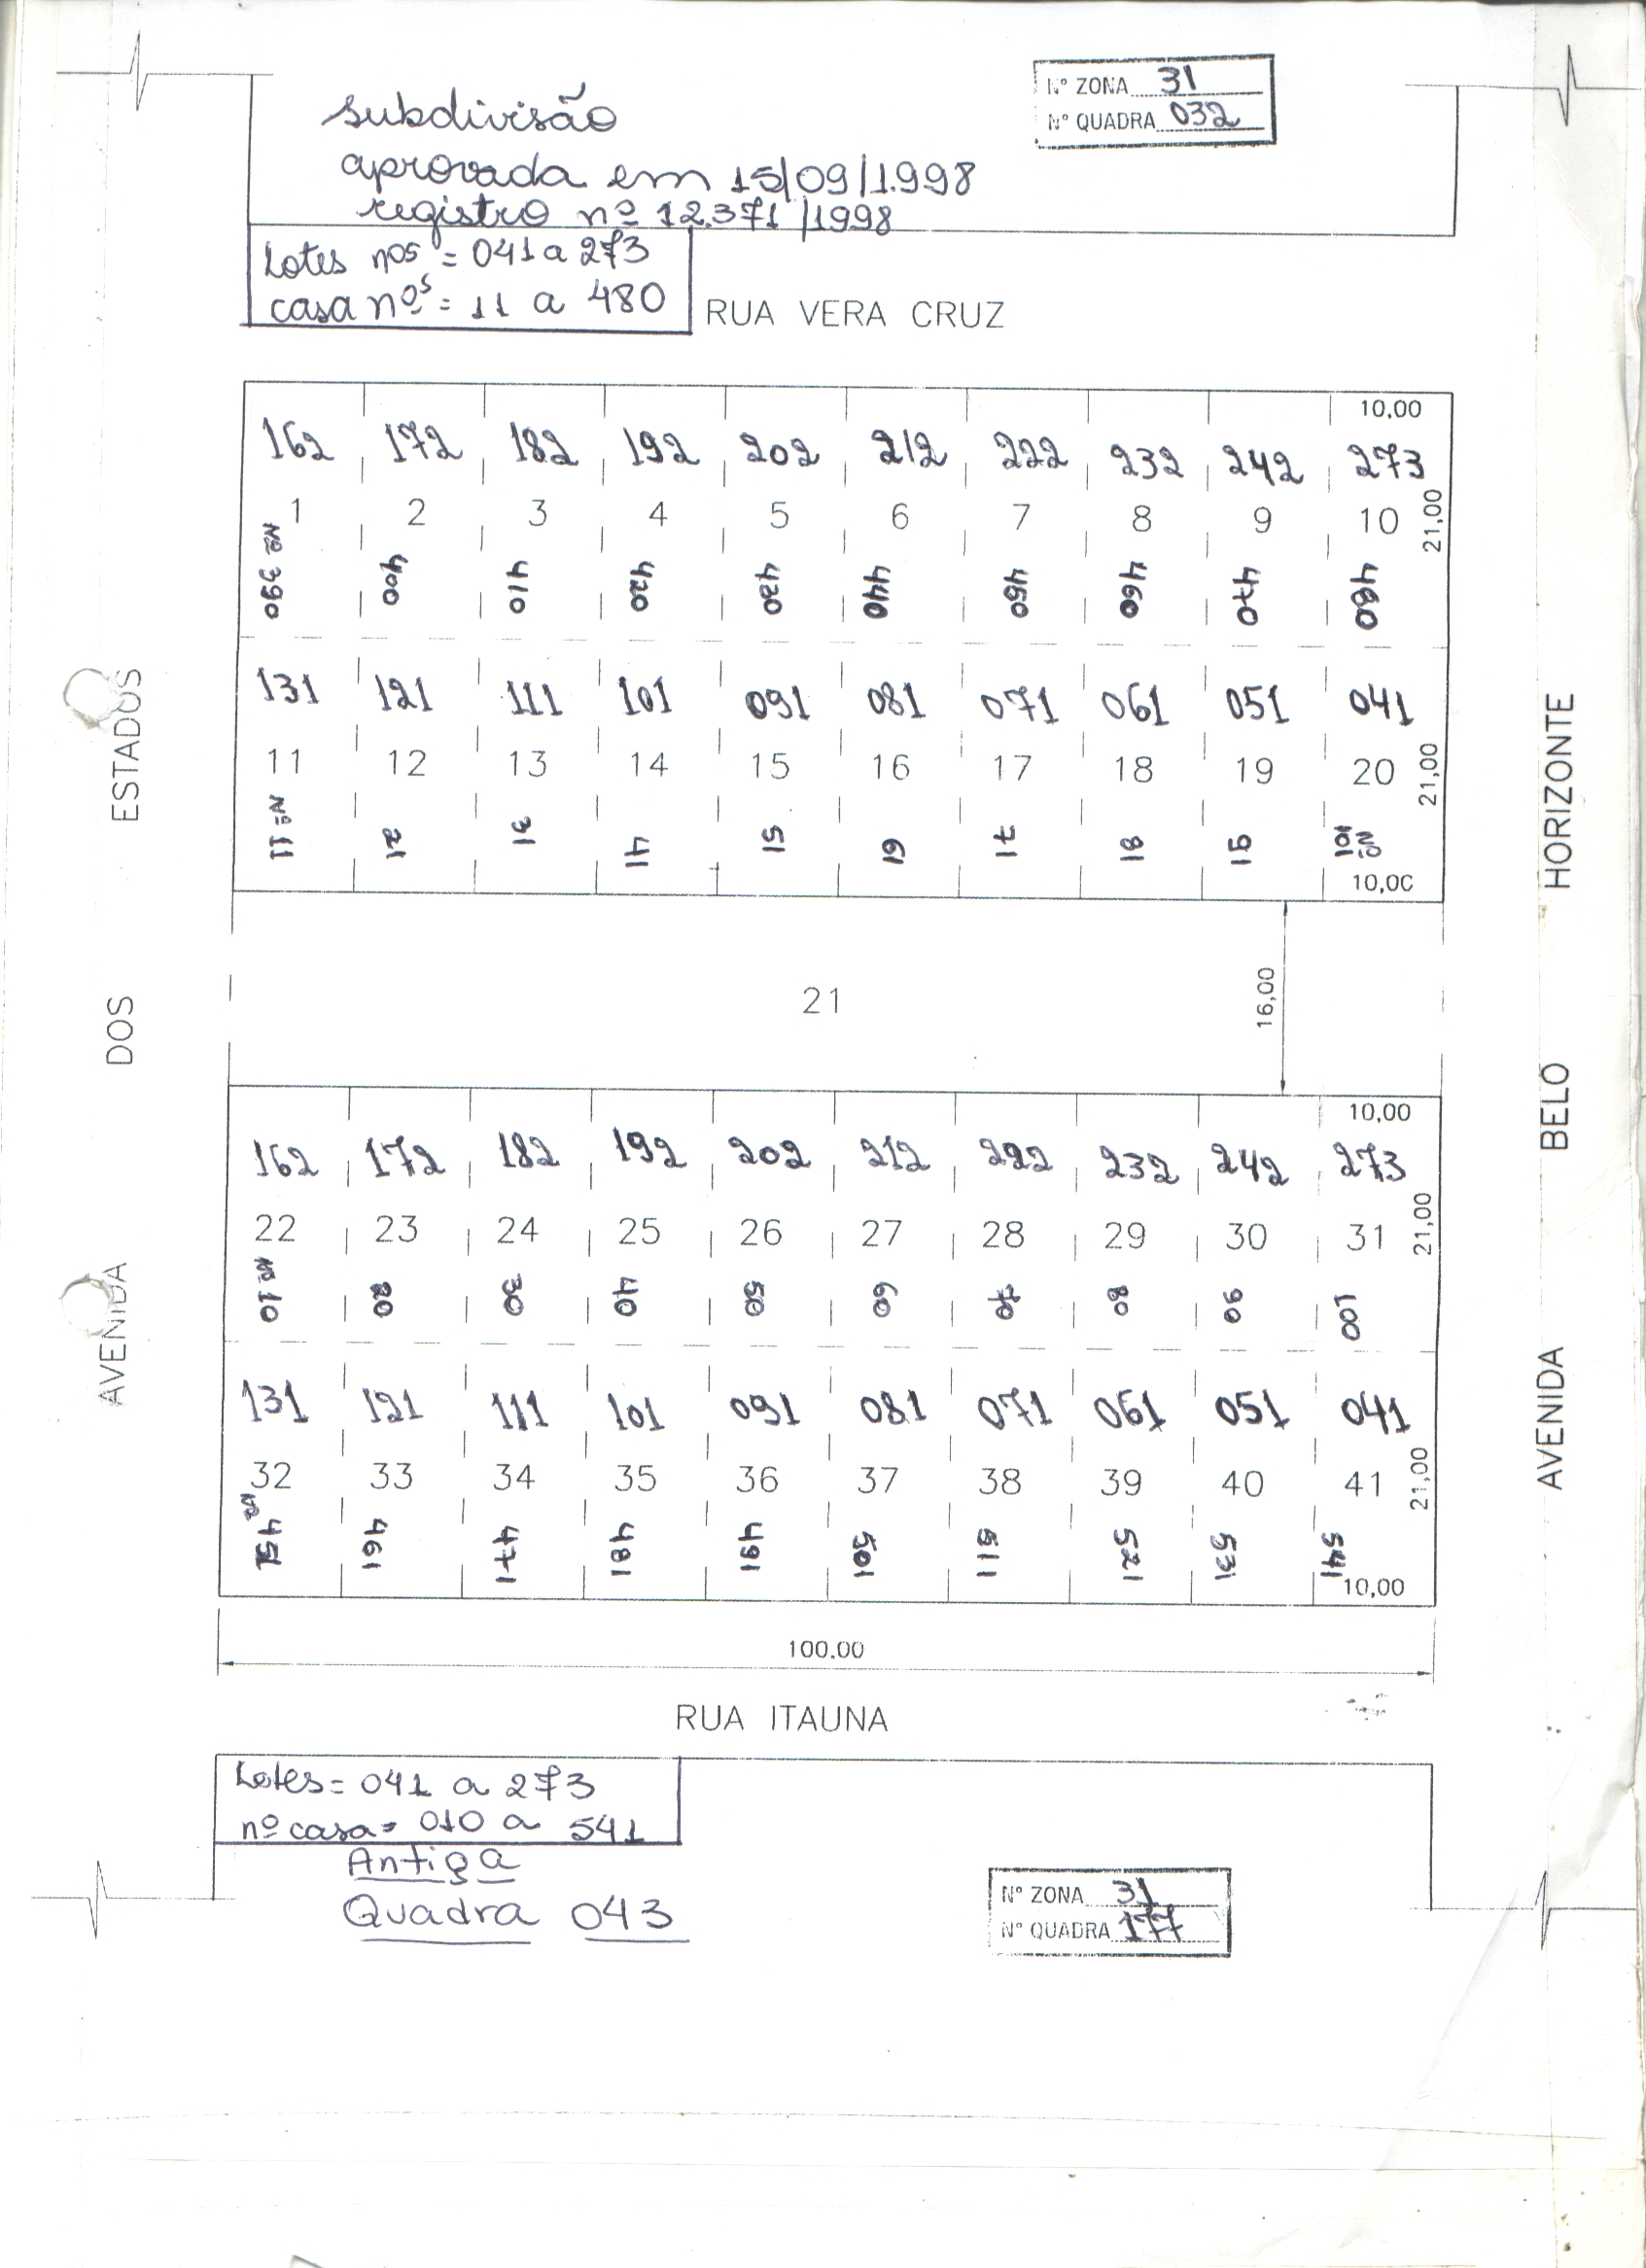 Nº ZONA 31
Nº QUADRA 032
subdivisão
aprovada em 15/09/1.998
registro nº 12.371/1998
Lotes nºs = 041 a 273
casa nºs = 11 a 480
RUA VERA CRUZ
10,00
162 172 182 192 202 212 222 232 242 273
1 2 3 4 5 6 7 8 9 10
21,00
Nº 390 400 410 420 430 440 450 460 470 480
131 121 111 101 091 081 071 061 051 041
11 12 13 14 15 16 17 18 19 20
21,00
Nº 11 21 31 41 51 61 71 81 91 Nº 101
10,00
21
16,00
10,00
162 172 182 192 202 212 222 232 242 273
22 23 24 25 26 27 28 29 30 31
21,00
Nº 10 20 30 40 50 60 70 80 90 100
131 121 111 101 091 081 071 061 051 041
32 33 34 35 36 37 38 39 40 41
21,00
Nº 451 461 471 481 491 501 511 521 531 541
10,00
100.00
AVENIDA DOS ESTADOS
AVENIDA BELO HORIZONTE
RUA ITAUNA
Lotes = 041 a 273
nº casa = 010 a 541
Antiga
Quadra 043
Nº ZONA 31
Nº QUADRA 177